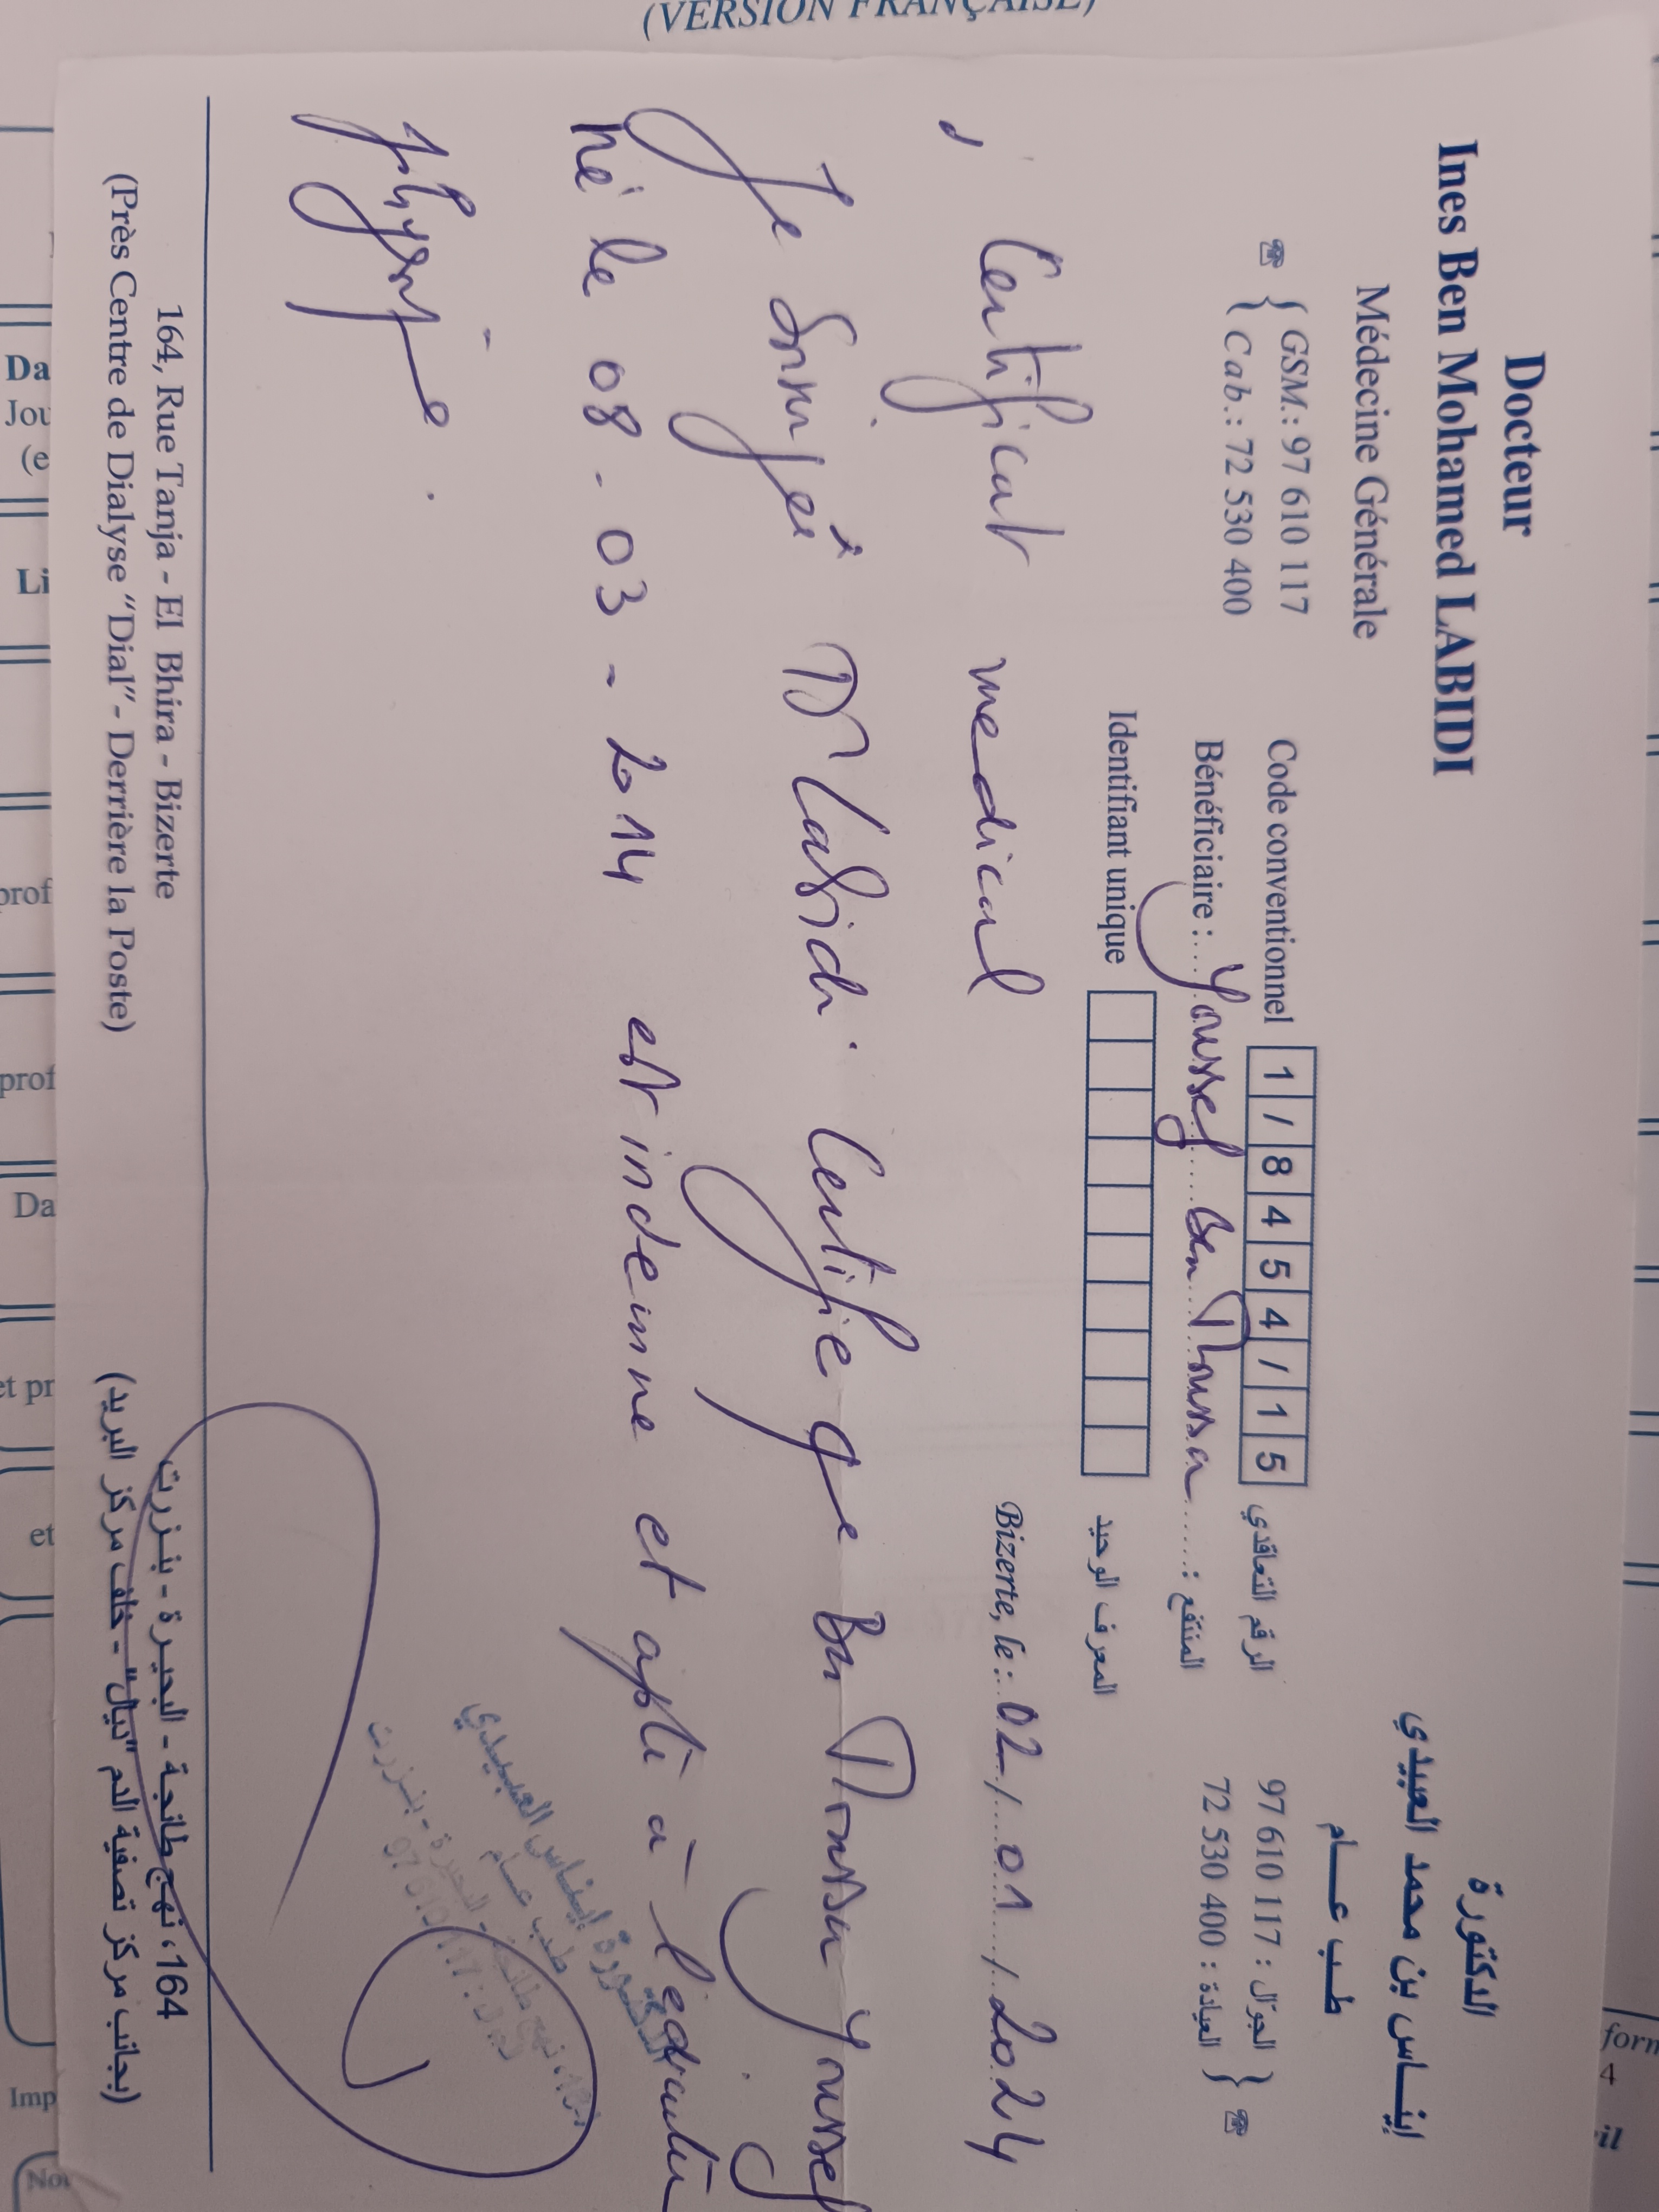 (VERSION FRANÇAISE)
Docteur
Ines Ben Mohamed LABIDI
Médecine Générale
☏ { GSM.: 97 610 117
Cab.: 72 530 400
الدكتورة
إينـــاس بن محمد العبيدي
طـــب عـــــام
97 610 117 : الجوّال } ☏
72 530 400 : العيادة
Code conventionnel 1 / 8 4 5 4 / 1 5 الرقم التعاقدي
Bénéficiaire : Youssef Ben Moussa المنتفع :
Identifiant unique المعرف الوحيد
Bizerte, le : 02 / 01 / 2024
Certificat medical
Je Sousigé Dr Labidi Certifie que Ben Moussa Youssef
né le 08 - 03 - 2014 est indemne et apte à l'education
physique.
الدكتورة إيناس العبيدي
طب عام
164، نهج طانجة - البحيرة - بنزرت
97 610 117
164, Rue Tanja - El Bhira - Bizerte
(Près Centre de Dialyse "Dial"- Derrière la Poste)
164، نهج طانجة - البحيرة - بنـزرت
(بجانب مركز تصفية الدم "ديال" - خلف مركز البريد)
Da
Jou
(e
Li
prof
prof
Da
et pr
et
Imp
No
form
4
il